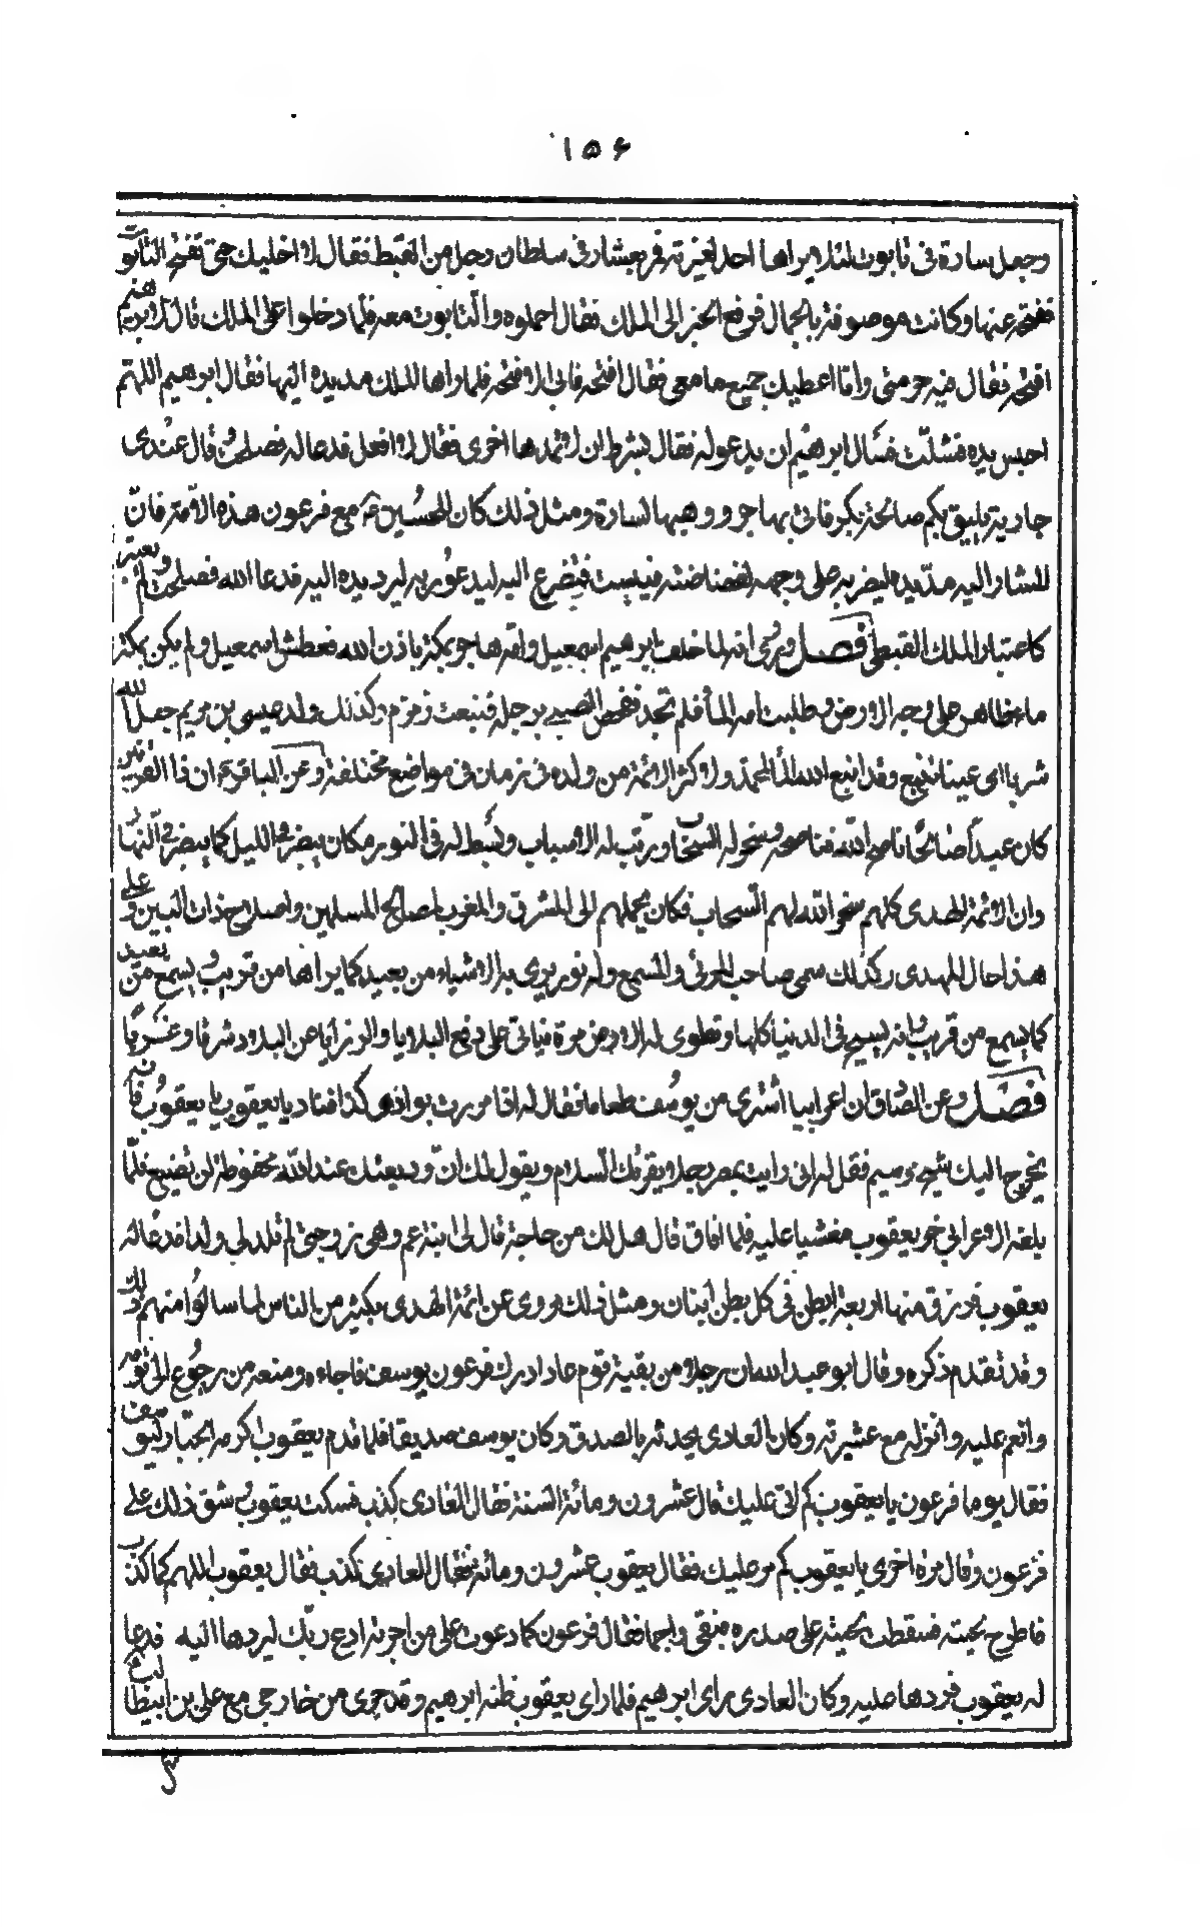 ۱۵۶
وجعل سارة فى تابوت لئلا يراها احد لغيرته فمر بعشار فى سلطان رجل من القبط فقال لا اخليك حتى تفتح التابوت
ففتحه عنها وكانت موصوفة بالجمال فرفع الخبر الى الملك فقال احملوه والتابوت معه فلما دخلوا على الملك قال لابرهيم
افتحه فقال فيه حرمتى وانا اعطيك جميع ما معى فقال افتحه فابى الا فتحه فلما راها الملك مد يده اليها فقال ابرهيم اللهم
احبس يده فشلت فسأل ابرهيم ان يدعو له فقال بشرط ان لا تمدها اخرى فقال لا افعل فدعا له فصلحت قال عندى
جارية يليق بكم صالحة بكر فاتى بها جر ووهبها لسارة ومثل ذلك كان للحسين ع مع فرعون هذه الامة فان
المشار اليه مد يده ليضربه على وجهه فيبست فتضرع اليه ليدعو ربه ليرد يده اليه فدعا الله فصلحت ولم يعتبر
كاعتبار الملك القبطى فصل وروى انه لما خلف ابرهيم اسمعيل وامه هاجر بمكة باذن الله فعطش اسمعيل ولم يكن بمكة
ماء ظاهر على وجه الارض وطلبت امه الماء فلم تجد ففحص الصبى برجله فنبعت زمزم وكذلك ولد عيسى بن مريم جعل الله
شربا اى عينا تنبع وقد انبع الله الماء لمحمد ولاكثر الائمة من ولده فى زمان فى مواضع مختلفة وعن الباقر ع ان ذا القرنين
كان عبدا صالحا ناصح الله فناصحه وسخر له السحاب ورتب له الاسباب وبسط له فى النور مكان يبصر فى الليل كما يبصر فى النهار
وان الائمة الهدى كلهم سخر الله لهم السحاب فكان يحملهم الى المشرق والمغرب لصالح المسلمين واصلاح ذات البين وعلى
هذا حال المهدى وكذلك سمى صاحب المرئى والمسمع وله نور يرى به الاشياء من بعيد كما يراها من قريب ويسمع من بعيد
كما يسمع من قريب وانه يسيح فى الدنيا كلها وتطوى له الارض مرة فياتى على دفع البلايا والرزايا عن البلاد شرقا وغربا
فصل وعن الصادق ان اعرابيا اشترى من يوسف طعاما فقال له اذا مررت بوادى كذا فناد يا يعقوب يا يعقوب فانه
يخرج اليك شيخ وسيم فقل له انى رايت بمصر رجلا يقرئك السلام ويقول لك ان وديعتك عند الله محفوظة لن تضيع فلما
بلغه الاعرابى خر يعقوب مغشيا عليه فلما افاق قال هل لك من حاجة قال لى ابنة عم وهى زوجتى لم تلد لى ولدا فدعا له
يعقوب فرزق منها اربعة ابطن فى كل بطن ابنان ومثل ذلك مروى عن ائمة الهدى بكثير من الناس لما سالوا منهم ذلك
وقد تقدم ذكره وقال ابو عبد الله ان رجلا من بقية قوم عاد ادرك فرعون يوسف فاجاءه ومنعه من رجوع الى قومه
وانعم عليه وانزله مع عشيرته وكان العادى يحدثه بالصدق وكان يوسف صديقا فلما قدم يعقوب اكرمه الجبار ليوسف
فقال يوما فرعون يا يعقوب كم اتى عليك قال عشرون ومائة السنة فقال العادى كذب فسكت يعقوب وشق ذلك على
فرعون وقال مرة اخرى يا يعقوب كم مر عليك فقال يعقوب عشرون ومائة فقال العادى كذب فقال يعقوب اللهم كما كذب
فاطرح لحيته فسقطت لحيته على صدره فبقى واجما فقال فرعون كما دعوت على من اجرته ادع ربك ليردها اليه فدعا
له يعقوب فردها عليه وكان العادى راى ابرهيم فلما راى يعقوب ظنه ابرهيم وقد جرى من خارجى مع على بن ابيطالب